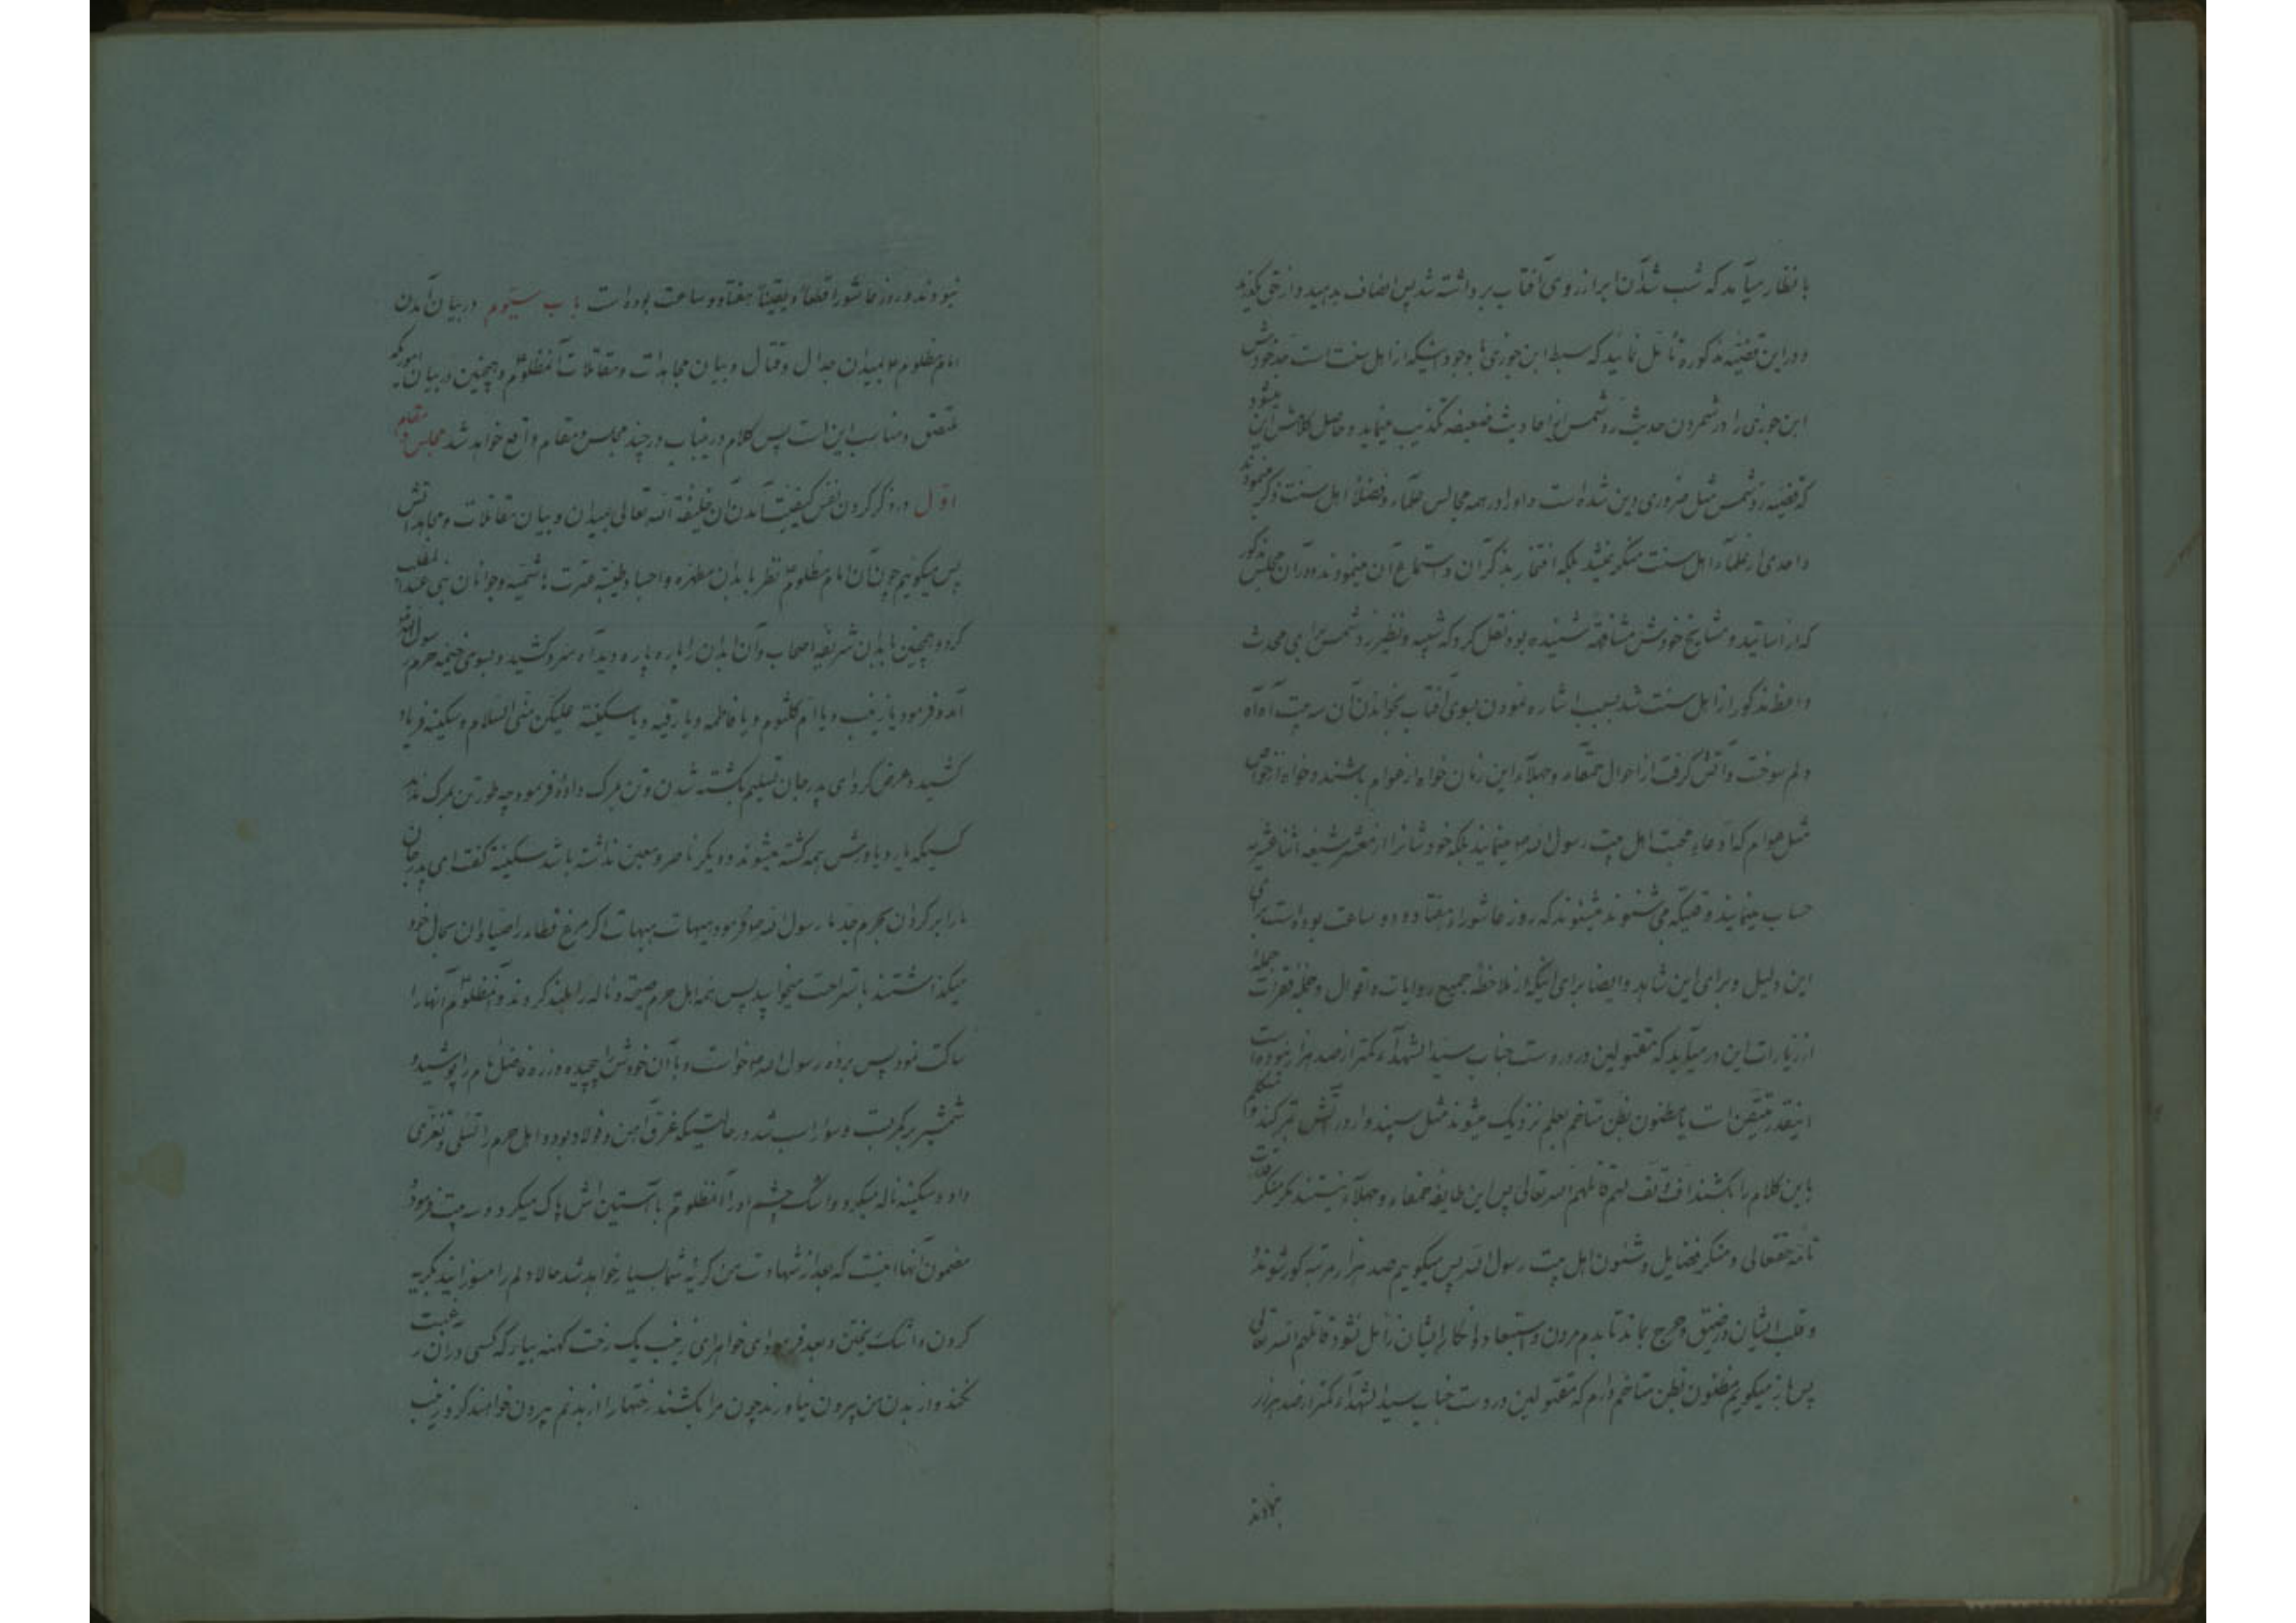 با نظار میآمد که شب شد آن ابر از روی آفتاب برداشته شد پس انصاف بدهید و از حق نگذرید
و در این قضیّه مذکوره تأمّل نمائید که سبط ابن جوزی با وجود اینکه از اهل سنت است جد خودش
ابن جوزی را در شمردن حدیث ردّ شمس از احادیث ضعیفه تکذیب مینماید و حاصل کلامش این میشود
که قضیّه ردّ شمس مثل ضروری دین شده است و او را در همه مجالس علمآء و فضلاء اهل سنت ذکر مینمودند
و احدی از علمآء اهل سنت منکر نمیشد بلکه افتخار بذکر آن و استماع آن مینمودند و در آن مجلس مذکور
که از اساتید و مشایخ خودش مشافهةً شنیده بود نقل کرد که شبیه و نظیر ردّ شمس برای محدث
واعظ مذکور از اهل سنت شد بسبب اشاره نمودن بسوی آفتاب بخواندن آن سه بیت آه آه
دلم سوخت و آتش گرفت از احوال حمقاء و جهلآء این زمان خواه از عوام باشند و خواه از خواص
مثل عوام که ادعاء محبت اهل بیت رسول الله ص مینمایند بلکه خودشانرا از معشر شیعه اثنا عشریه
حساب مینمایند وقتیکه می شنوند که روز عاشوراء هفتاد و دو ساعت بوده است برای
این دلیل و برای این شاهد و ایضا برای اینکه از ملاحظه جمیع روایات و اقوال و جملهٔ فقرات
از زیارات این در میآید که مقتولین در دست جناب سید الشهدآء کمتر از صد هزار نبوده است
اینقدر متیقن است یا مظنون بظن متاخم بعلم نزدیک میشوند مثل سپند وار در آتش بترکند و متکلم
باین کلام را بکشند افّ و تفّ لهم قاتلهم الله تعالی پس این طایفه حمقاء و جهلآء نیستند مگر منکر قدرت
تامّه حقتعالی و منکر فضایل و شئون اهل بیت رسول الله پس میگویم صد هزار مرتبه کور شوند
و قلب ایشان در ضیق و حرج بماند تا بدم مردن و استبعاد و انکار ایشان زایل نشود قاتلهم الله تعالی
پس باز میگویم مظنون بظن متاخم دارم که مقتولین در دست جناب سید الشهدآء کمتر از صد هزار
نبودند
نبودند و روز عاشورا قطعاً و یقیناً هفتاد و دو ساعت بوده است باب سیّوم در بیان آمدن
امام مظلوم ع بمیدان جدال و قتال و بیان مجاهدات و مقاتلات آنمظلوم و همچنین در بیان اموریکه
متعلق و مناسب این است پس کلام در اینباب در چند مجلس و مقام واقع خواهد شد مجلس و مقام
اوّل در ذکر کردن نفس کیفیّت آمدن آن خلیفة الله تعالی بمیدان و بیان مقاتلات و مجاهداتش
پس میگویم چون آن امام مظلوم نظر بابدان مطهّره و اجساد طیّبه عترت هاشمیّه و جوانان بنی عبد المطلب
کرد و همچنین بابدان شریفه اصحاب و آن ابدان را پاره پاره دید آه سرد کشید و بسوی خیمه حرم رسول الله ص
آمد و فرمود یا زینب و یا ام کلثوم و یا فاطمه و یا رقیه و یا سکینة علیکن منّی السلام و سکینه فریاد
کشید و عرض کرد ای پدر جان تسلیم بکشته شدن و تن بمرگ دادهٔ فرمود چه طور تن بمرگ ندهد
کسیکه یار و یاورش همه کشته میشوند و دیگر ناصر و معین نداشته باشد سکینه گفت ای پدر جان
ما را برگردان بحرم جد ما رسول الله ص فرمود هیهات هیهات اگر مرغ قطا را صیادان بحال خود
میگذاشتند باستراحت میخوابید پس همه اهل حرم صیحه و ناله را بلند کردند و آنمظلوم آنها را
ساکت نمود پس برده رسول الله ص خواست و با آن خودش را پیچیده و زره فاضل هم را پوشید و
شمشیر برگرفت و سوار اسب شد در حالتیکه غرق آهن و فولاد بود و اهل حرم را تسلی و تعزّی
داد و سکینه ناله میکرد و اشک چشم او را آنمظلوم با آستین اش پاک میکرد و سه بیت فرمود
مضمون آنها اینست که بعد از شهادت من گریهٔ شما بسیار خواهد شد حالا دلم را مسوزانید بگریه
کردن و اشک ریختن و بعد فرمود ای خواهر ای زینب یک رخت کهنه بیار که کسی در آن رغبت
نکند و از بدن من بیرون نیاورند چون مرا بکشند رختهارا از بدنم بیرون خواهند کرد زینب